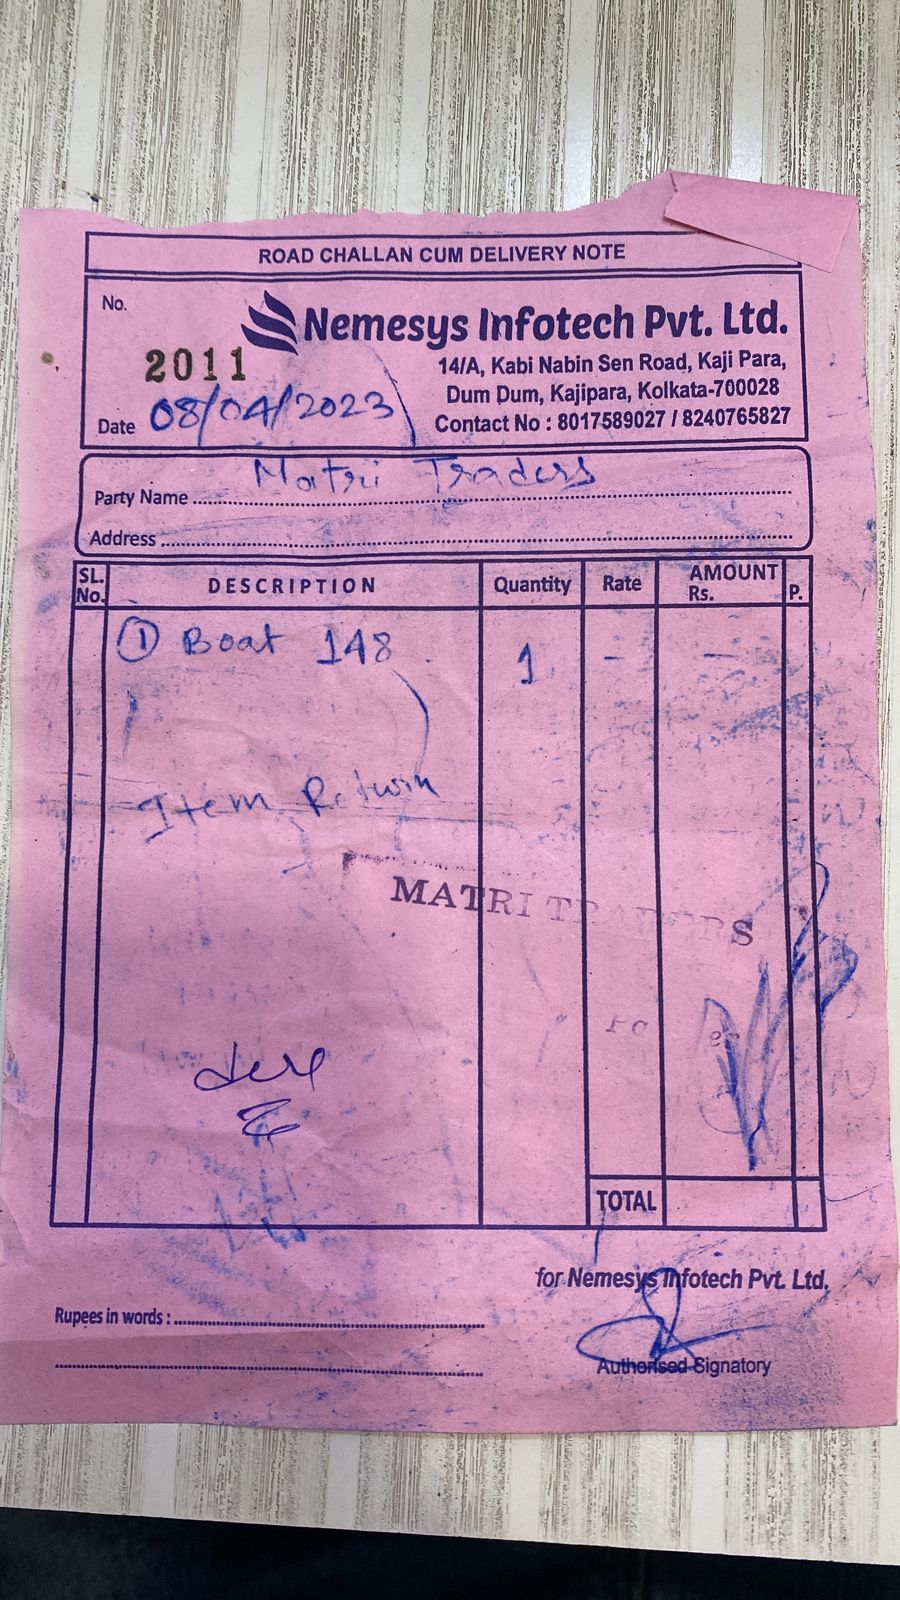 ROAD CHALLAN CUM DELIVERY NOTE
No.
2011
Nemesys Infotech Pvt. Ltd.
14/A, Kabi Nabin Sen Road, Kaji Para,
Dum Dum, Kajipara, Kolkata-700028
Contact No : 8017589027 / 8240765827
Date 08/04/2023
Party Name Matri Traders
Address
SL. No. DESCRIPTION Quantity Rate AMOUNT Rs. P.
① Boat 148 1 - -
Item Return
MATRI TRADERS
TOTAL
for Nemesys Infotech Pvt. Ltd.
Rupees in words :
Authorised Signatory